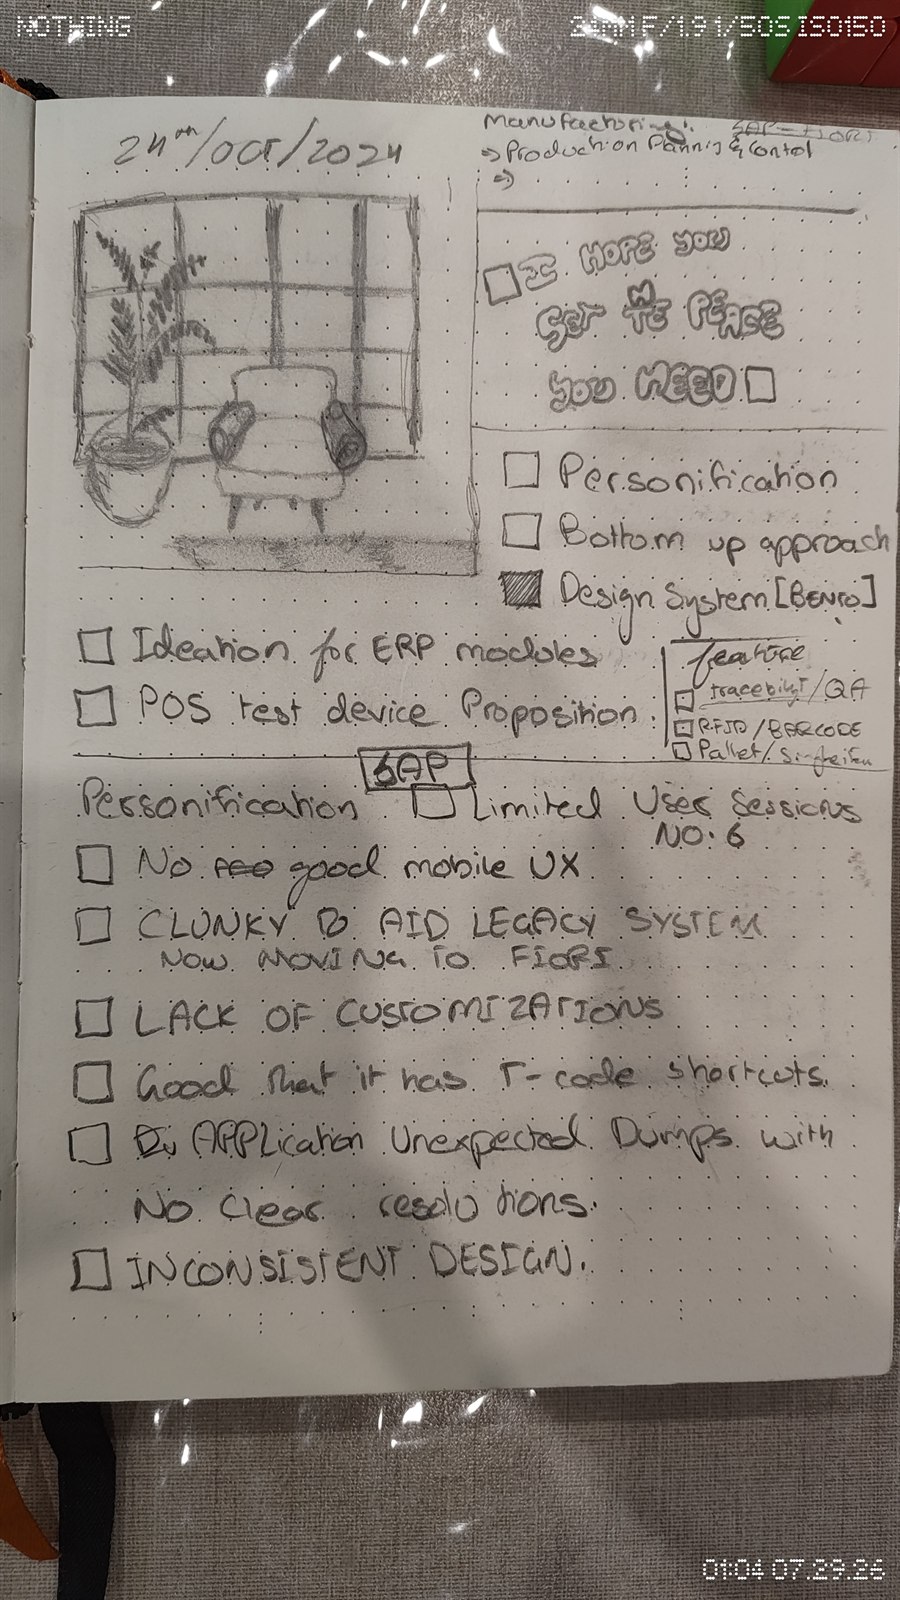 NOTHING
24MM F/1.9 1/50S ISO150
24TH/OCT/2024
Manufacturing: SAP-FIORI
→ Production Planning & Control
I HOPE YOU
GET THE PEACE
YOU NEED
Personification
Bottom up approach
Design System [BENTO]
Ideation for ERP modules
POS test device Proposition
feature
/QA
RFID/BARCODE
Pallet/
SAP
Personification
Limited User Sessions
NO: 6
No good mobile UX
CLUNKY AID LEGACY SYSTEM
NOW MOVING TO FIORI
LACK OF CUSTOMIZATIONS
Good that it has T-code shortcuts.
APPLication Unexpected Dumps with
No Clear resolutions.
INCONSISTENT DESIGN.
01:04 07.29.26